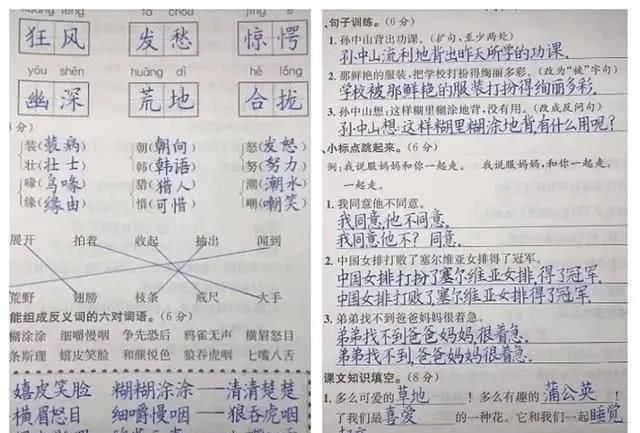 kuáng fēng fā chóu jīng è
狂风 发愁 惊愕
yōu shēn huāng dì hé lǒng
幽深 荒地 合拢
分)
装(装病) 朝(朝向) 怒(发怒)
壮(壮士) 韩(韩语) 努(努力)
喙(鸟喙) 猎(猎人) 潮(潮水)
缘(缘由) 惜(可惜) 嘲(嘲笑)
展开 拍着 收起 抽出 闻到
荒野 翅膀 枝条 戒尺 大手
能组成反义词的六对词语。(6分)
糊涂涂 细嚼慢咽 争先恐后 鸦雀无声 横眉怒目
条斯理 嬉皮笑脸 和颜悦色 狼吞虎咽 七嘴八舌
嬉皮笑脸 糊糊涂涂——清清楚楚
横眉怒目 细嚼慢咽——狼吞虎咽
、句子训练。(6分)
1. 孙中山背出功课。(扩句,至少两处)
孙中山流利地背出昨天所学的功课.
2. 那鲜艳的服装,把学校打扮得绚丽多彩。(改为“被”字句)
学校被那鲜艳的服装打扮得绚丽多彩.
3. 孙中山想:这样糊里糊涂地背,没有用。(改成反问句)
孙中山想:这样糊里糊涂地背有什么用呢?
小标点跳起来。(6分)
例:我说服妈妈和你一起走。 我说服妈妈,和你一起走。
一起走。
1. 我同意他不同意。
我同意,他不同意.
我同意他不?同意.
2. 中国女排打败了塞尔维亚女排得了冠军。
中国女排打扮了塞尔维亚女排,得了冠军.
中国女排打败了塞尔维亚女排得了冠军.
3. 弟弟找不到爸爸妈妈很着急。
弟弟找不到爸爸妈妈,很着急.
弟弟找不到,爸爸妈妈很着急.
课文知识填空。(8分)
1. 多么可爱的草地!多么有趣的蒲公英!
了我们最喜爱的一种花。它和我们一起睡觉